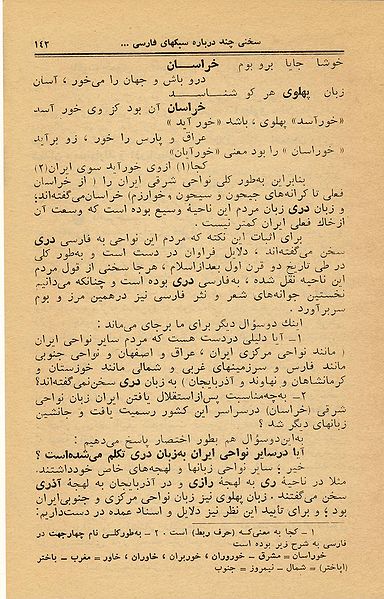 سخنی چند درباره سبکهای فارسی ... ۱۴۲
خوشا جایا برو بوم خراسان
درو باش و جهان را می‌خور ، آسان
زبان پهلوی هر کو شناسد
خراسان آن بود کز وی خور آسد
«خورآسد» پهلوی ، باشد «خور آید»
عراق و پارس را خور ، زو برآید
«خوراسان» را بود معنی «خورآیان»
کجا(۱) ازوی خورآید سوی ایران(۲)
بنابراین به‌طور کلی نواحی شرقی ایران را ( از خراسان
فعلی تا کرانه‌های جیحون و سیحون و خوارزم) خراسان‌می‌گفته‌اند؛
و زبان دری زبان مردم این ناحیهٔ وسیع بوده است که وسعت آن
ازخاك فعلی ایران کمتر نیست .
برای اثبات این نکته که مردم این نواحی به فارسی دری
سخن می‌گفته‌اند ، دلایل فراوان در دست است و به‌طور کلی
در طی تاریخ دو قرن اول بعدازاسلام ، هرجا سخنی از قول مردم
این ناحیه نقل شده ، به‌فارسی دری بوده است و چنانکه می‌دانیم
نخستین جوانه‌های شعر و نثر فارسی نیز درهمین مرز و بوم
سربرآورد .
اینك دوسؤال دیگر برای ما برجای می‌ماند :
۱ – آیا دلیلی دردست هست که مردم سایر نواحی ایران
( مانند نواحی مرکزی ایران ، عراق و اصفهان و نواحی جنوبی
مانند فارس و سرزمینهای غربی و شمالی مانند خوزستان و
کرمانشاهان و نهاوند و آذربایجان ) به زبان دری سخن‌نمی‌گفته‌اند؟
۲ – به‌چه‌مناسبت پس‌ازاستقلال یافتن ایران زبان نواحی
شرقی (خراسان) درسراسر این کشور رسمیت یافت و جانشین
زبانهای دیگر شد ؟
به‌این‌دوسؤال هم بطور اختصار پاسخ می‌دهیم :
آیا درسایر نواحی ایران به‌زبان دری تکلم می‌شده‌است ؟
خیر ؛ سایر نواحی زبانها و لهجه‌های خاص خودداشتند.
مثلا در ناحیهٔ ری به لهجهٔ رازی و در آذربایجان به لهجهٔ آذری
سخن می‌گفتند . زبان پهلوی نیز زبان نواحی مرکزی و جنوبی‌ایران
بود ؛ و برای تأیید این نظر نیز دلایل و اسناد عمده در دست‌داریم:
۱ – کجا به معنی‌که (حرف ربط) است . ۲ – به‌طورکلـی نام چهارجهت در
فارسی به شرح زیر بوده است
خوراسان = مشرق – خوروران ، خوربران ، خاوران ، خاور = مغرب – باختر
(اپاختر) = شمال – نیمروز = جنوب